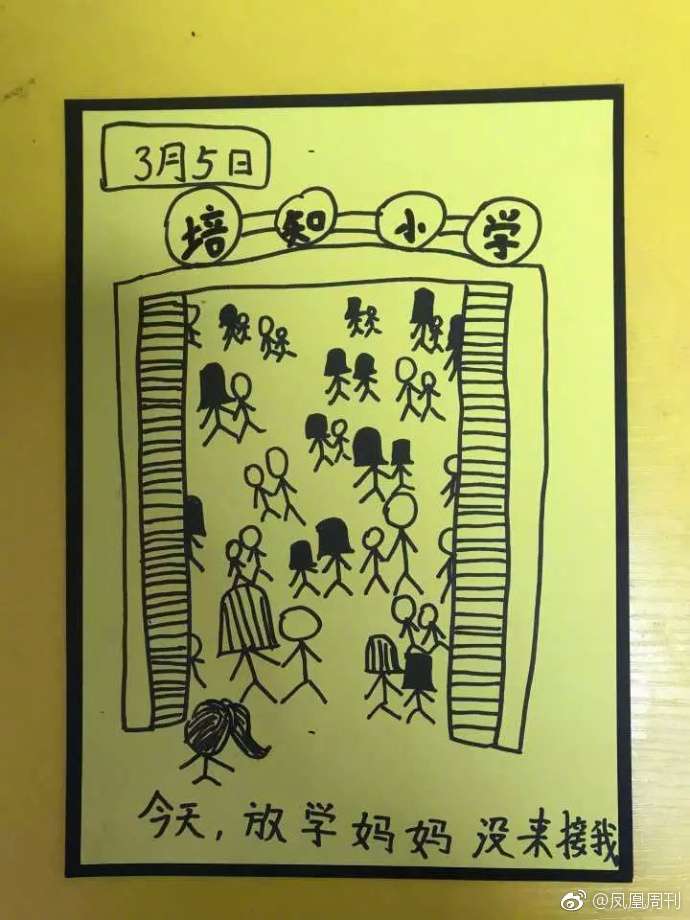 3月5日
培知小学
今天，放学妈妈没来接我
@凤凰周刊